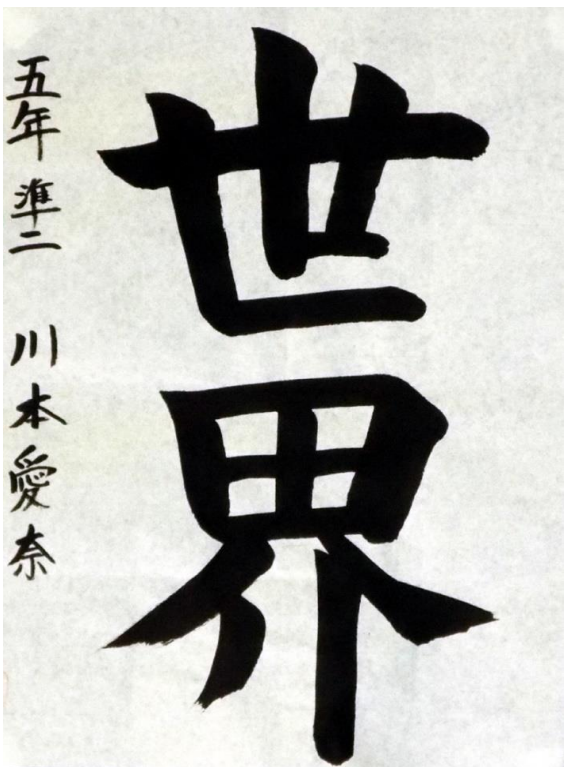 世界
五年 準二 川本愛奈